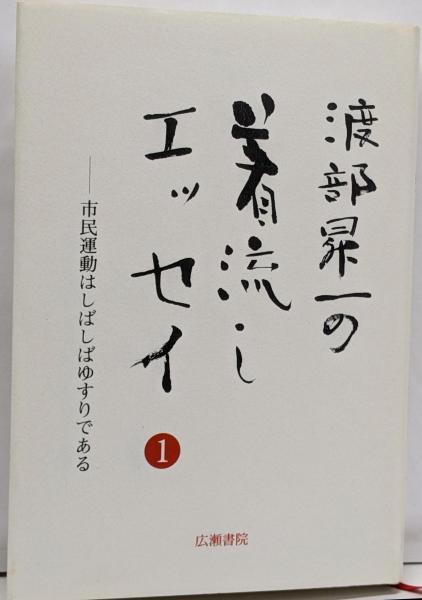 渡部昇一の
着流し
エッセイ
1
——市民運動はしばしばゆすりである
広瀬書院